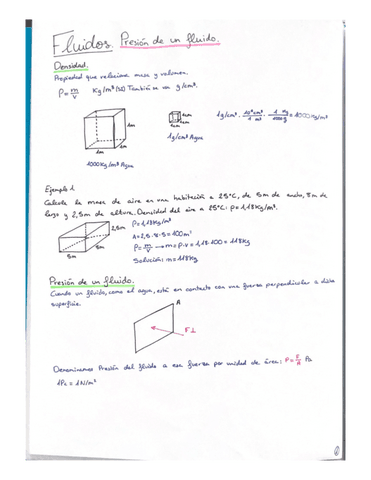 Fluidos. Presión de un fluido.
Densidad.
Propiedad que relaciona masa y volumen.
ρ = m/v Kg/m³ (SI) También se usa g/cm³.
1g/cm³ · 10⁶cm³/1 m³ · 1 Kg/1000g = 1000 Kg/m³
1m
1m
1m
1cm
1cm
1g/cm³ Agua
1000Kg/m³ Agua
Ejemplo 1
Calcula la masa de aire en una habitación a 25°C, de 5m de ancho, 8m de
largo y 2,5m de altura. Densidad del aire a 25°C: ρ = 1'18Kg/m³.
2,5m
8m
5m
ρ = 1'18Kg/m³
= 2,5·8·5 = 100m³
ρ = m/v → m = ρ·v = 1'18·100 = 118Kg
Solución: m = 118Kg
Presión de un fluido.
Cuando un fluido, como el agua, está en contacto con una fuerza perpendicular a dicha
superficie.
A
F⊥
Denominamos Presión del fluido a esa fuerza por unidad de área: P = F/A Pa
1Pa = 1N/m²